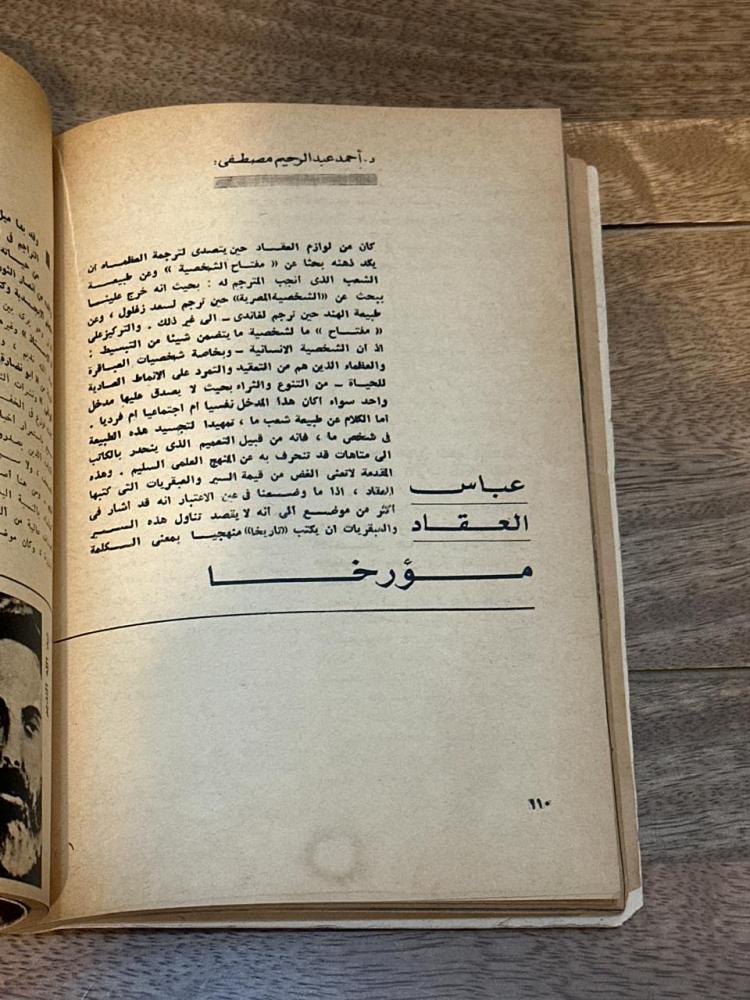 د. أحمد عبد الرحيم مصطفى :
كان من لوازم العقاد حين يتصدى لترجمة العظماء أن
يكد ذهنه بحثا عن « مفتاح الشخصية » وعن طبيعة
الشعب الذى أنجب المترجم له : بحيث انه خرج علينا
يبحث عن «الشخصية المصرية» حين ترجم لسعد زغلول ، وعن
طبيعة الهند حين ترجم لغاندى ـ الى غير ذلك . والتركيز على
« مفتاح » ما لشخصية ما يتضمن شيئا من التبسيط :
اذ ان الشخصية الانسانية ـ وبخاصة شخصيات العباقرة
والعظماء الذين هم من التعقيد والتمرد على الانماط العادية
للحياة ـ من التنوع والثراء بحيث لا يصدق عليها مدخل
واحد سواء أكان هذا المدخل نفسيا أم اجتماعيا أم فرديا .
أما الكلام عن طبيعة شعب ما ، تمهيدا لتجسيد هذه الطبيعة
فى شخص ما ، فانه من قبيل التعميم الذى ينحدر بالكاتب
الى متاهات قد تنحرف به عن المنهج العلمى السليم . وهذه
المقدمة لاتعنى الغض من قيمة السير والعبقريات التى كتبها
العقاد ، اذا ما وضعنا فى عين الاعتبار انه قد أشار فى
أكثر من موضع الى أنه لا يقصد تناول هذه السير
والعبقريات أن يكتب «تاريخا» منهجيا بمعنى الكلمة
عباس
العقاد
مؤرخا
١١٠
عبد الله النديم